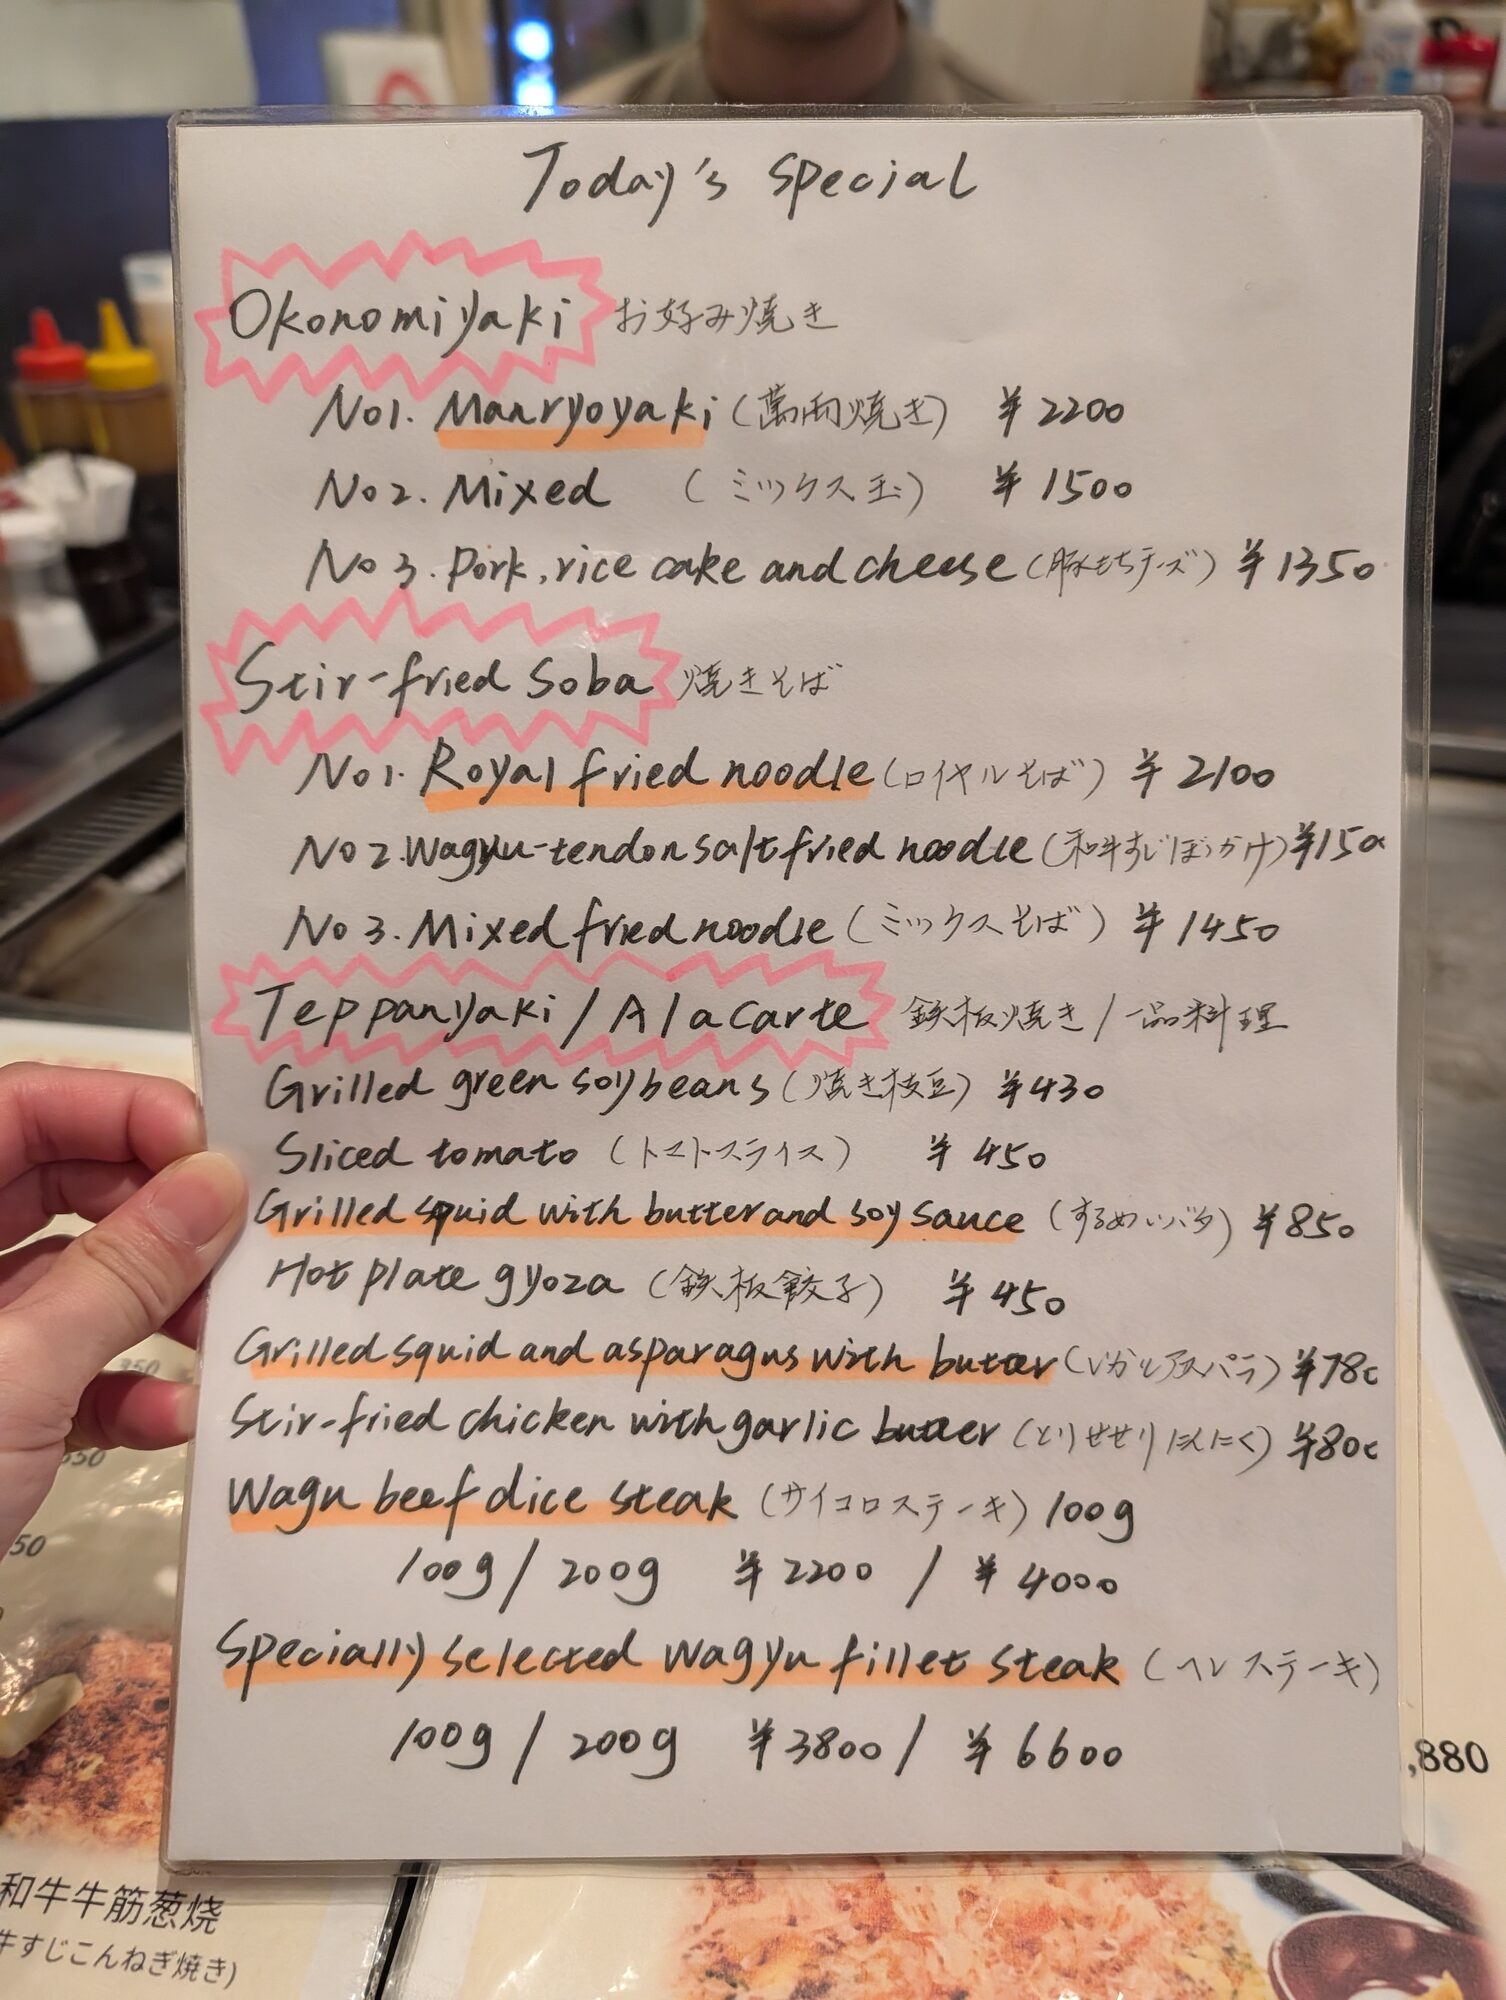 Today's special
Okonomiyaki お好み焼き
No1. Manryoyaki (萬両焼き) ¥2200
No2. Mixed (ミックス玉) ¥1500
No3. Pork, rice cake and cheese (豚もちチーズ) ¥1350
Stir-fried Soba 焼きそば
No1. Royal fried noodle (ロイヤルそば) ¥2100
No2. Wagyu-tendon salt fried noodle (和牛すじぼっかけ) ¥150
No3. Mixed fried noodle (ミックスそば) ¥1450
Teppanyaki / A la carte 鉄板焼き / 一品料理
Grilled green soybeans (焼き枝豆) ¥430
Sliced tomato (トマトスライス) ¥450
Grilled squid with butter and soy sauce (するめいバタ) ¥850
Hot plate gyoza (鉄板餃子) ¥450
Grilled squid and asparagus with butter (いかとアスパラ) ¥780
Stir-fried chicken with garlic butter (とりせせりにんにく) ¥800
Wagu beef dice steak (サイコロステーキ) 100g
100g / 200g ¥2200 / ¥4000
Specially selected wagyu fillet steak (ヘレステーキ)
100g / 200g ¥3800 / ¥6600
,880
和牛牛筋葱烧
牛すじこんねぎ焼き)